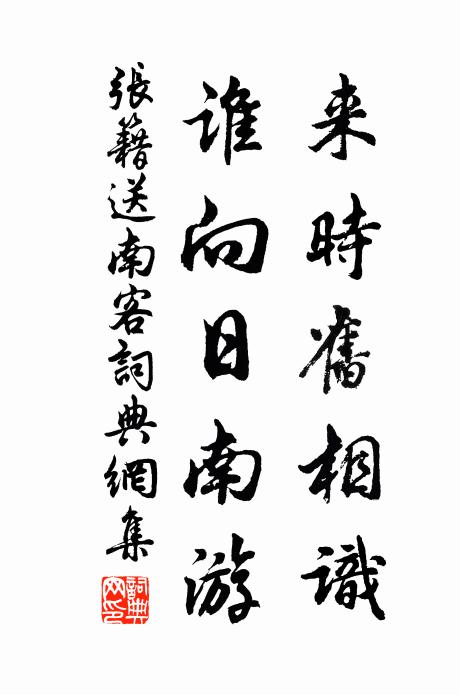 来時舊相識
誰向日南游
張籍送南客詞典網集
詞典网印